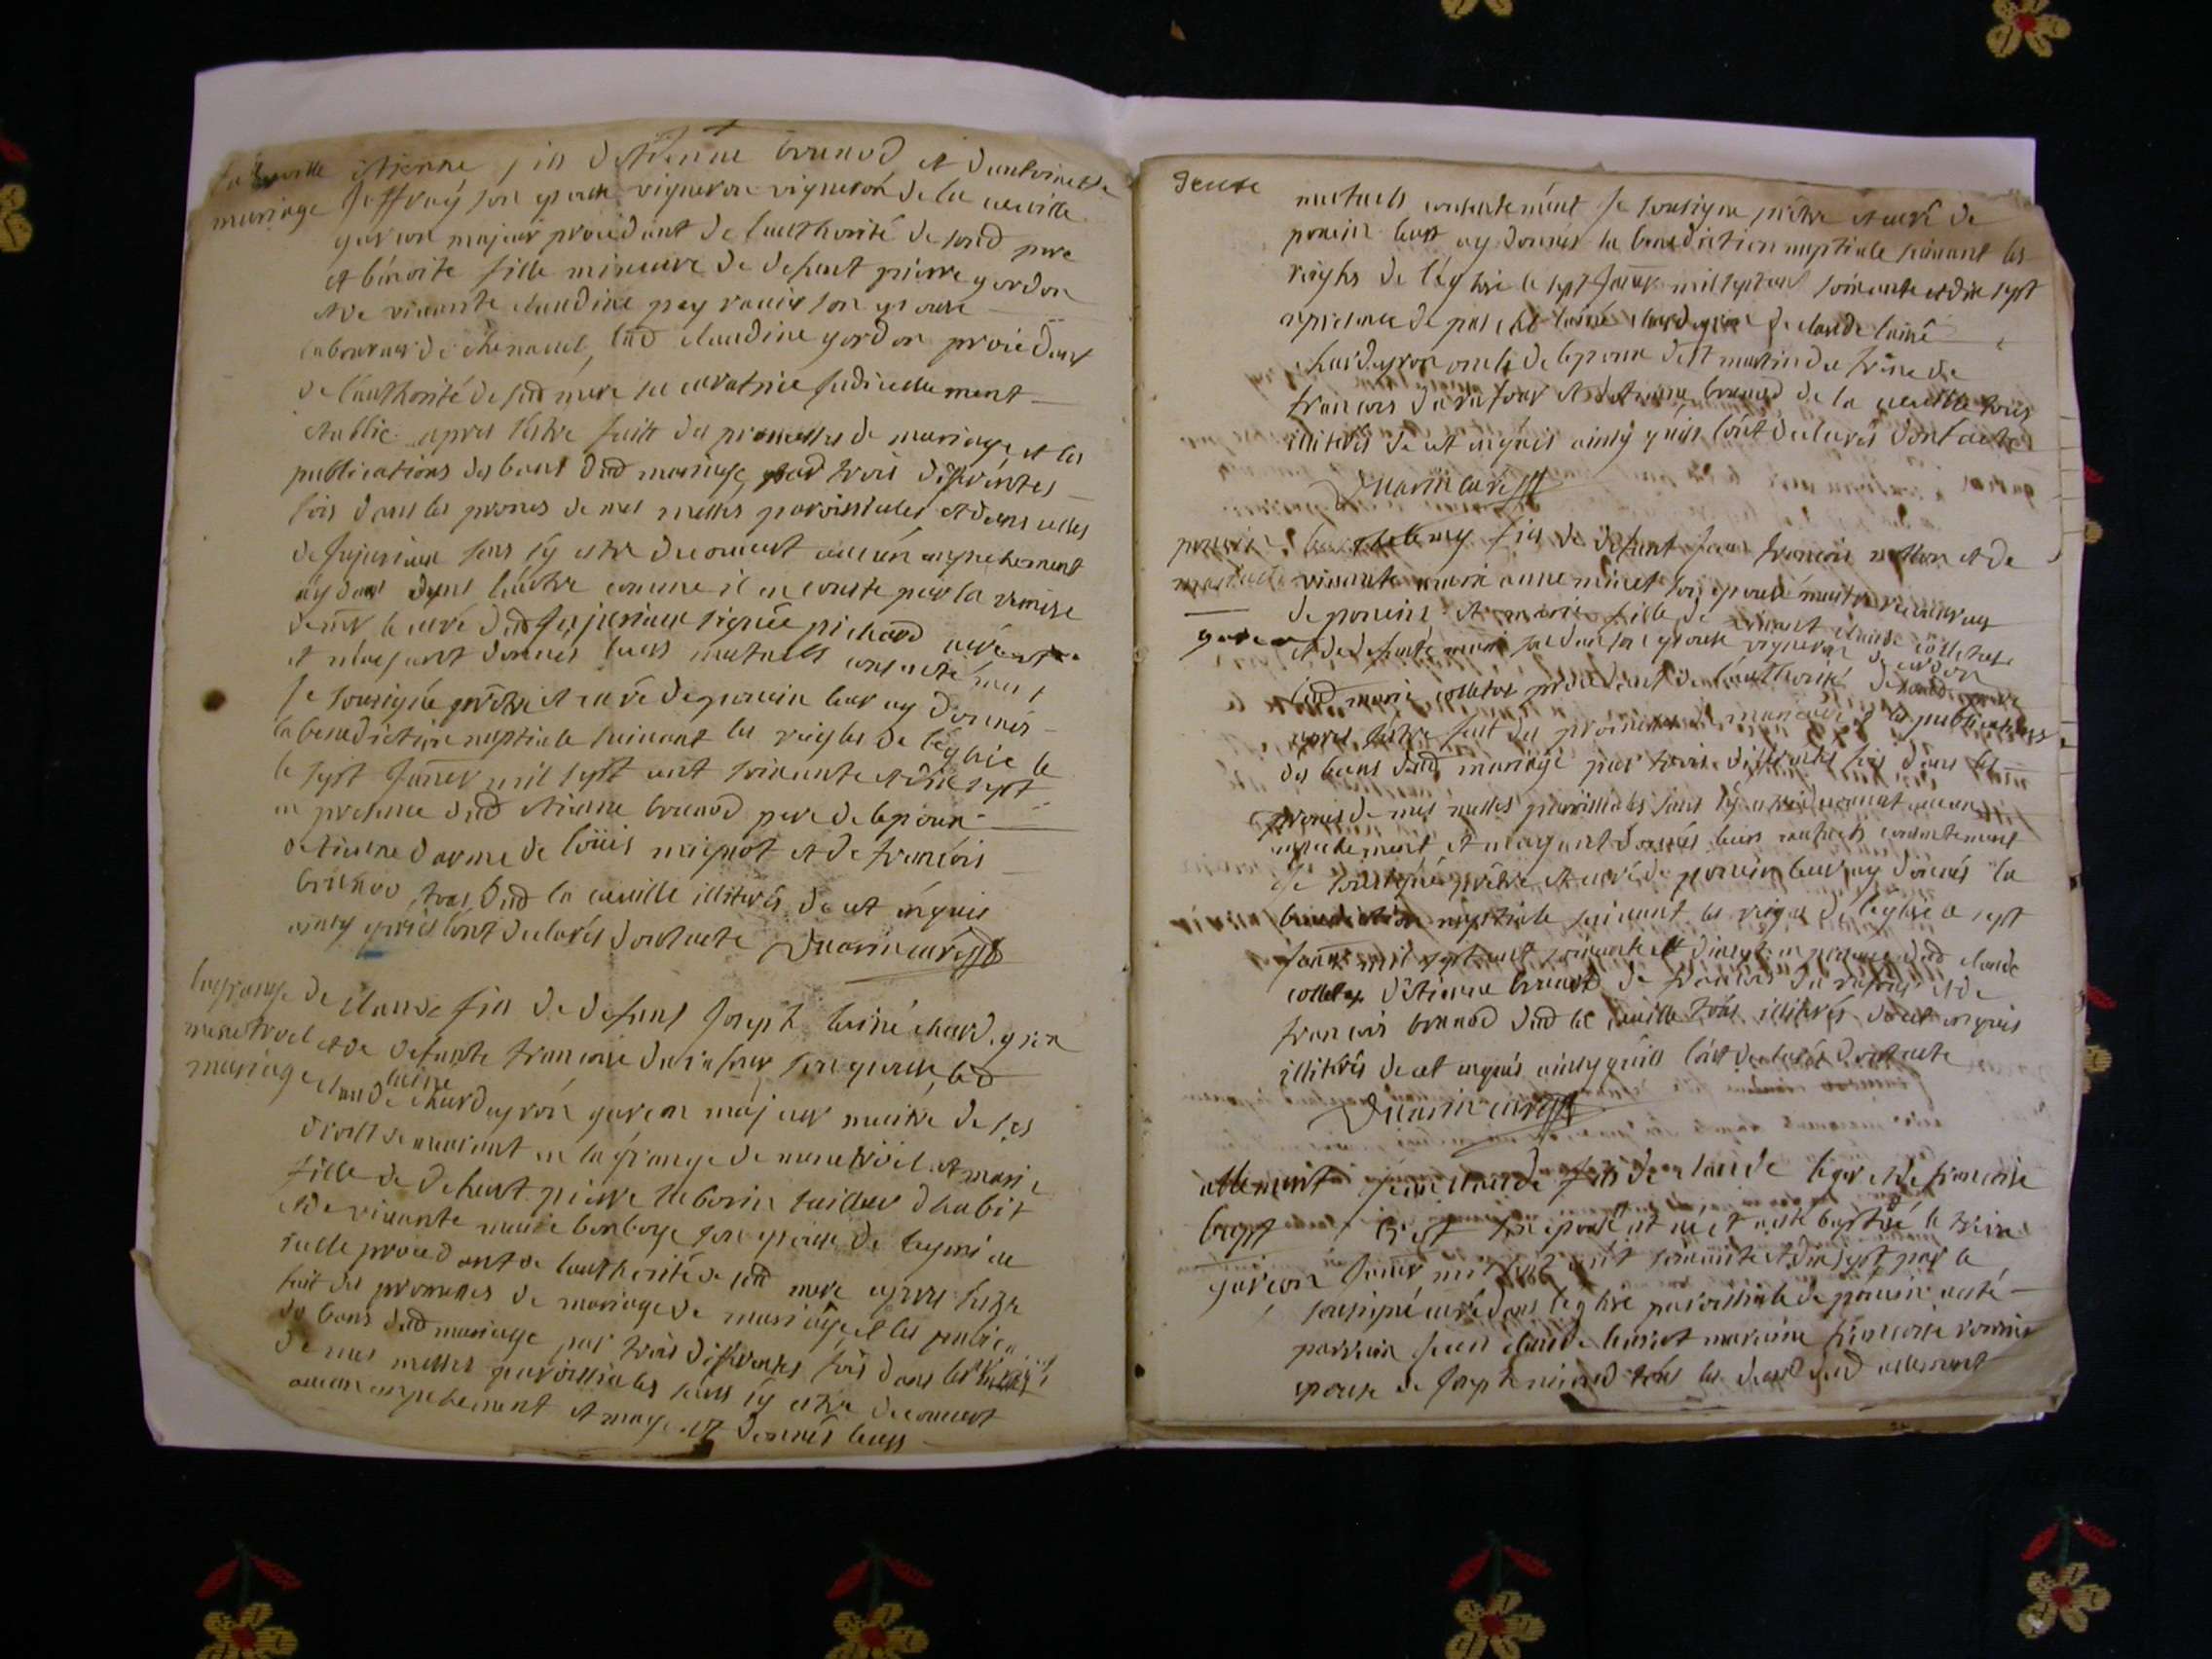 la cueille Etienne fils d'Etienne brunod et d'antoinette
mariage Joffray son epouse vigneron vigneron de la cueille
garcon majeur procedant de l'authorité de sond pere
et benoite fille mineure de defunt pierre gordon
et de vivante claudine pey son epouse
laboureur de chenavel lad claudine gordon procedant
de l'authorité de sad mere sa curatrice judiciellement
etablie apres s'estre fait des promesses de mariage et les
publications des bans dud mariage par trois differentes
fois dans les prones de mes messes paroissiales et dans celles
de jujurieux sans s'y estre decouvert aucun anpechement
comme il en conste par la remise
de mr le curé dud jujurieux signée pichard curé
et m'ayant donnés leurs mutuels consentement
Je soussignée prêtre et curé de poncin leur ay donnés
la benediction nuptiale suivant les reigles de l'eglise le
le sept Janer mil sept cent soixante et dix sept
en presence dud etienne brunod pere de lepoux
detienne darme de loüis mignot et de francois
brunod tous dud la cueille illiterés de ce enquis
ainsy qu'ils l'ont declarés dont acte Duarin curé
la grange de claude fils de defunt Joseph lainé chardeyron
menetruel et de defunte francoise durafour son epouse led
mariage claude lainé chardeyron garcon majeur maitre de ses
droits demeurant en la grange de menetruel et marie
fille de defunt pierre tailleur dhabit
et de vivante marie son epouse de
celle procedant de l'authorité de sad mere apres s'estre
fait des promesses de mariage de mariage et les
des bans dud mariage par trois differentes fois dans les
de mes messes paroissiales sans s'y estre decouvert
aucun anpechement et m'ayant donnés leurs
deuxe mutuels consentement Je soussigné prêtre et curé de
poncin leur ay donnés la benediction nuptiale suivant les
reigles de l'eglise le sept Janer mil sept cent soixante et dix sept
en presence de lainé chardeyron de claude lainé
chardeyron oncle de lepoux de st martin du frêne de
francois durafour et detienne brunod de la cueille tous
illiterés de ce enquis ainsy qu'ils l'ont declarés dont acte
Duarin curé
poncin fils de defunt Jean francois et de
mariage vivante marie anne minet son epouse
de poncin et marie fille de vivant claude colletaz
et de defunte marie son epouse vigneron de cerdon
lad marie colletaz procedant de l'authorité de sond pere
apres s'estre fait des promesses de mariage et les publications
des bans dud mariage par trois differentes fois dans les
prones de mes messes paroissiales sans s'y estre decouvert aucun
anpechement et m'ayant donnés leurs mutuels consentement
Je soussigné prêtre et curé de poncin leur ay donnés la
benediction nuptiale suivant les reigles de l'eglise le sept
Janer mil sept cent soixante et dix sept en presence dud claude
colletaz d'etienne brunod de francois durafour et de
francois brunod dud la cueille tous illiterés de ce enquis
illiterés de ce enquis ainsy qu'ils l'ont declarés dont acte
Duarin curé
allement Jean claude fils de claude leger et de francoise
bapt son epouse est né et a été baptisé le treize
garcon Janer mil sept cent soixante et dix sept par le
soussigné curé dans l'eglise paroissiale de poncin a eté
parrain Jean claude et maraine francoise
epouse de Joseph tous les deux dud allement